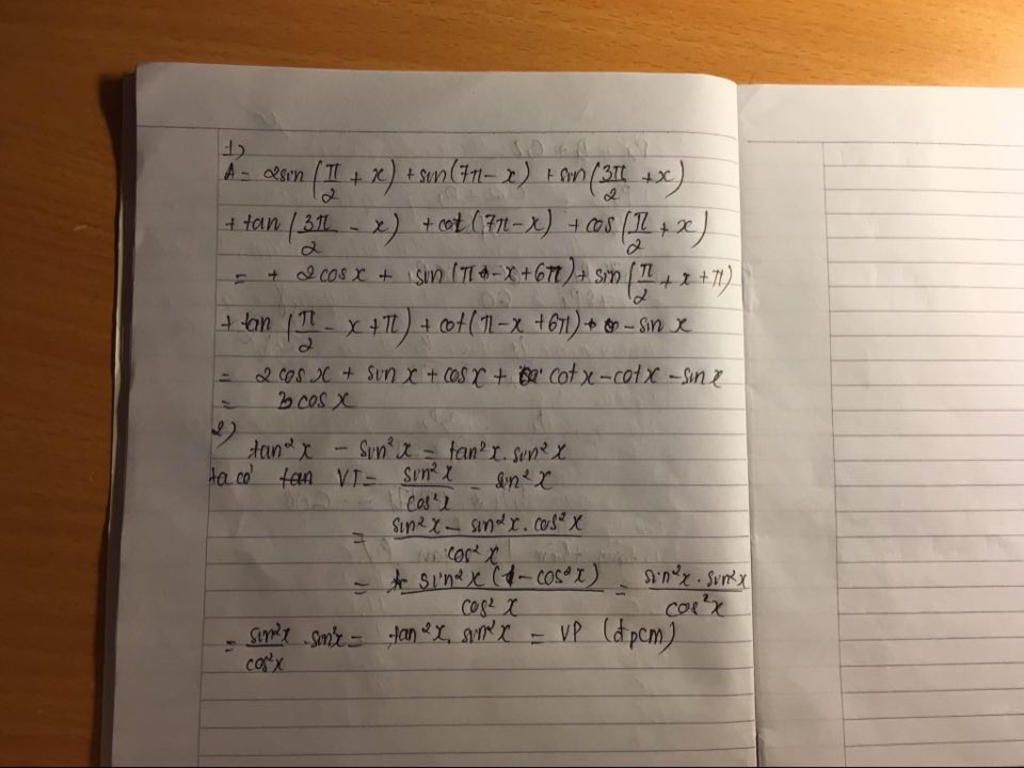 1)
A = 2sin(π/2 + x) + sin(7π - x) + sin(3π/2 + x)
+ tan(3π/2 - x) + cot(7π - x) + cos(π/2 + x)
= + 2cosx + sin(π - x + 6π) + sin(π/2 + x + π)
+ tan(π/2 - x + π) + cot(π - x + 6π) + - sin x
= 2cosx + sinx + cosx + cotx - cotx - sinx
= 3cosx
2)
tan²x - sin²x = tan²x . sin²x
ta có tan VT = sin²x/cos²x - sin²x
= (sin²x - sin²x . cos²x)/cos²x
= sin²x(1 - cos²x)/cos²x = sin²x . sin²x/cos²x
= sin²x/cos²x . sin²x = tan²x . sin²x = VP (đpcm)